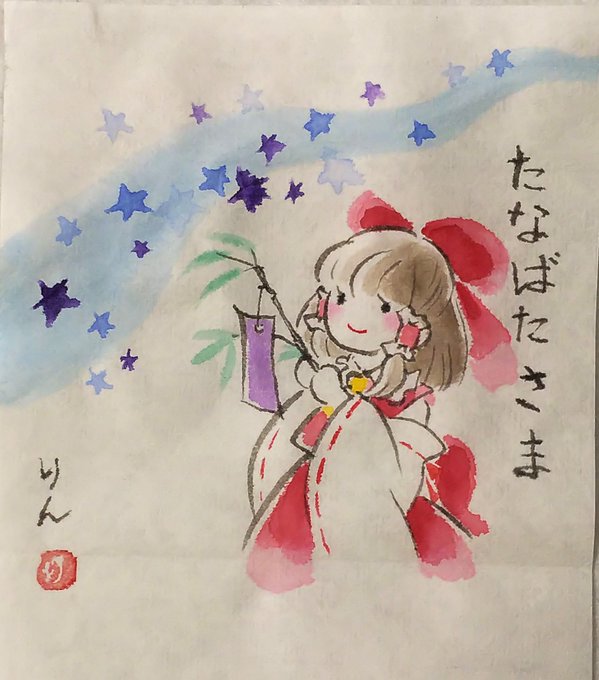 たなばたさま
りん